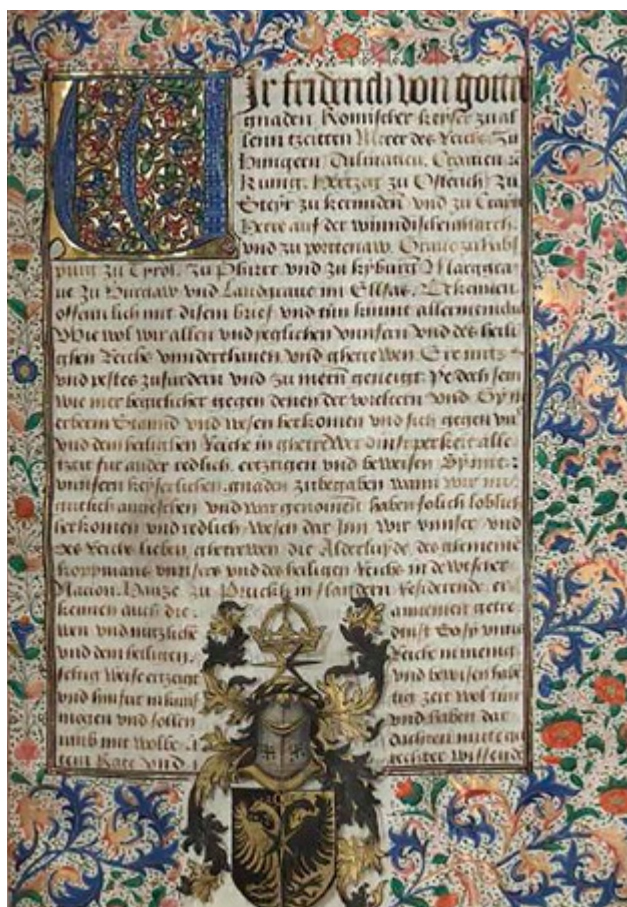 Wir fridrich von gottes
gnaden Romischer keyser zu al
lenn tzeitten Merer des Reichs Zu
Hungern Dalmatien, Croatien ꝛc
kunig. Hertzog zu Osterich Zu
Steyr zu kernnden vnd zu Crayn
Herre auf der winndischenmarch
vnd zu portenaw. Graue zu habs
purg zu Tyrol. zu Phirrt vnd zu kyburg Marggra
ue zu Burgaw vnd Landgraue im Ellsas. Bekennen
offennlich mit disem brief vnd tun kunnt allermeniclich
Wie wol wir allen vnd yeglichen vnnsern vnd des heili
ghen Reichs vnnderthanen vnd ghetrewen Ere nutz
vnd pestes zufurdern vnd zu mern geneigt. Ye doch sein
wir mer begirlicher gegen denen der vorelltern vnd Sy in
erberm Stannd vnd wesen herkomen vnd sich gegen vns
vnd dem heilighen Reiche in ghetrewer dinstperkeit alle
tzeit fur ander redlich ertzeigen vnd beweisen Sy mit
vnnsern keyserlichen gnaden zubegaben wann wir nu
gutlich angesehen vnd war genomen haben solich loblich
herkomen vnd redlich wesen dar Inn wir vnnser vnd
des Reichs lieben ghetrewen die Alderluyde des ghemeine
koppmans vnnsers vnd des heiligen Reichs in
Nacion. Hanze zu Pruckh in flandern Residerende er
kennen auch die annemen getre
wen vnd nutzliche dinst So sy vnns
vnd dem heiligen Reiche in menig
feltig weise ertzeigt vnd bewisen habe
vnd hinfur in kunf tig zeit wol tun
mogen vnd sollen vnd haben dar
umb mit wolbe dachten mute gu
tem Rate vnd rechter wissende